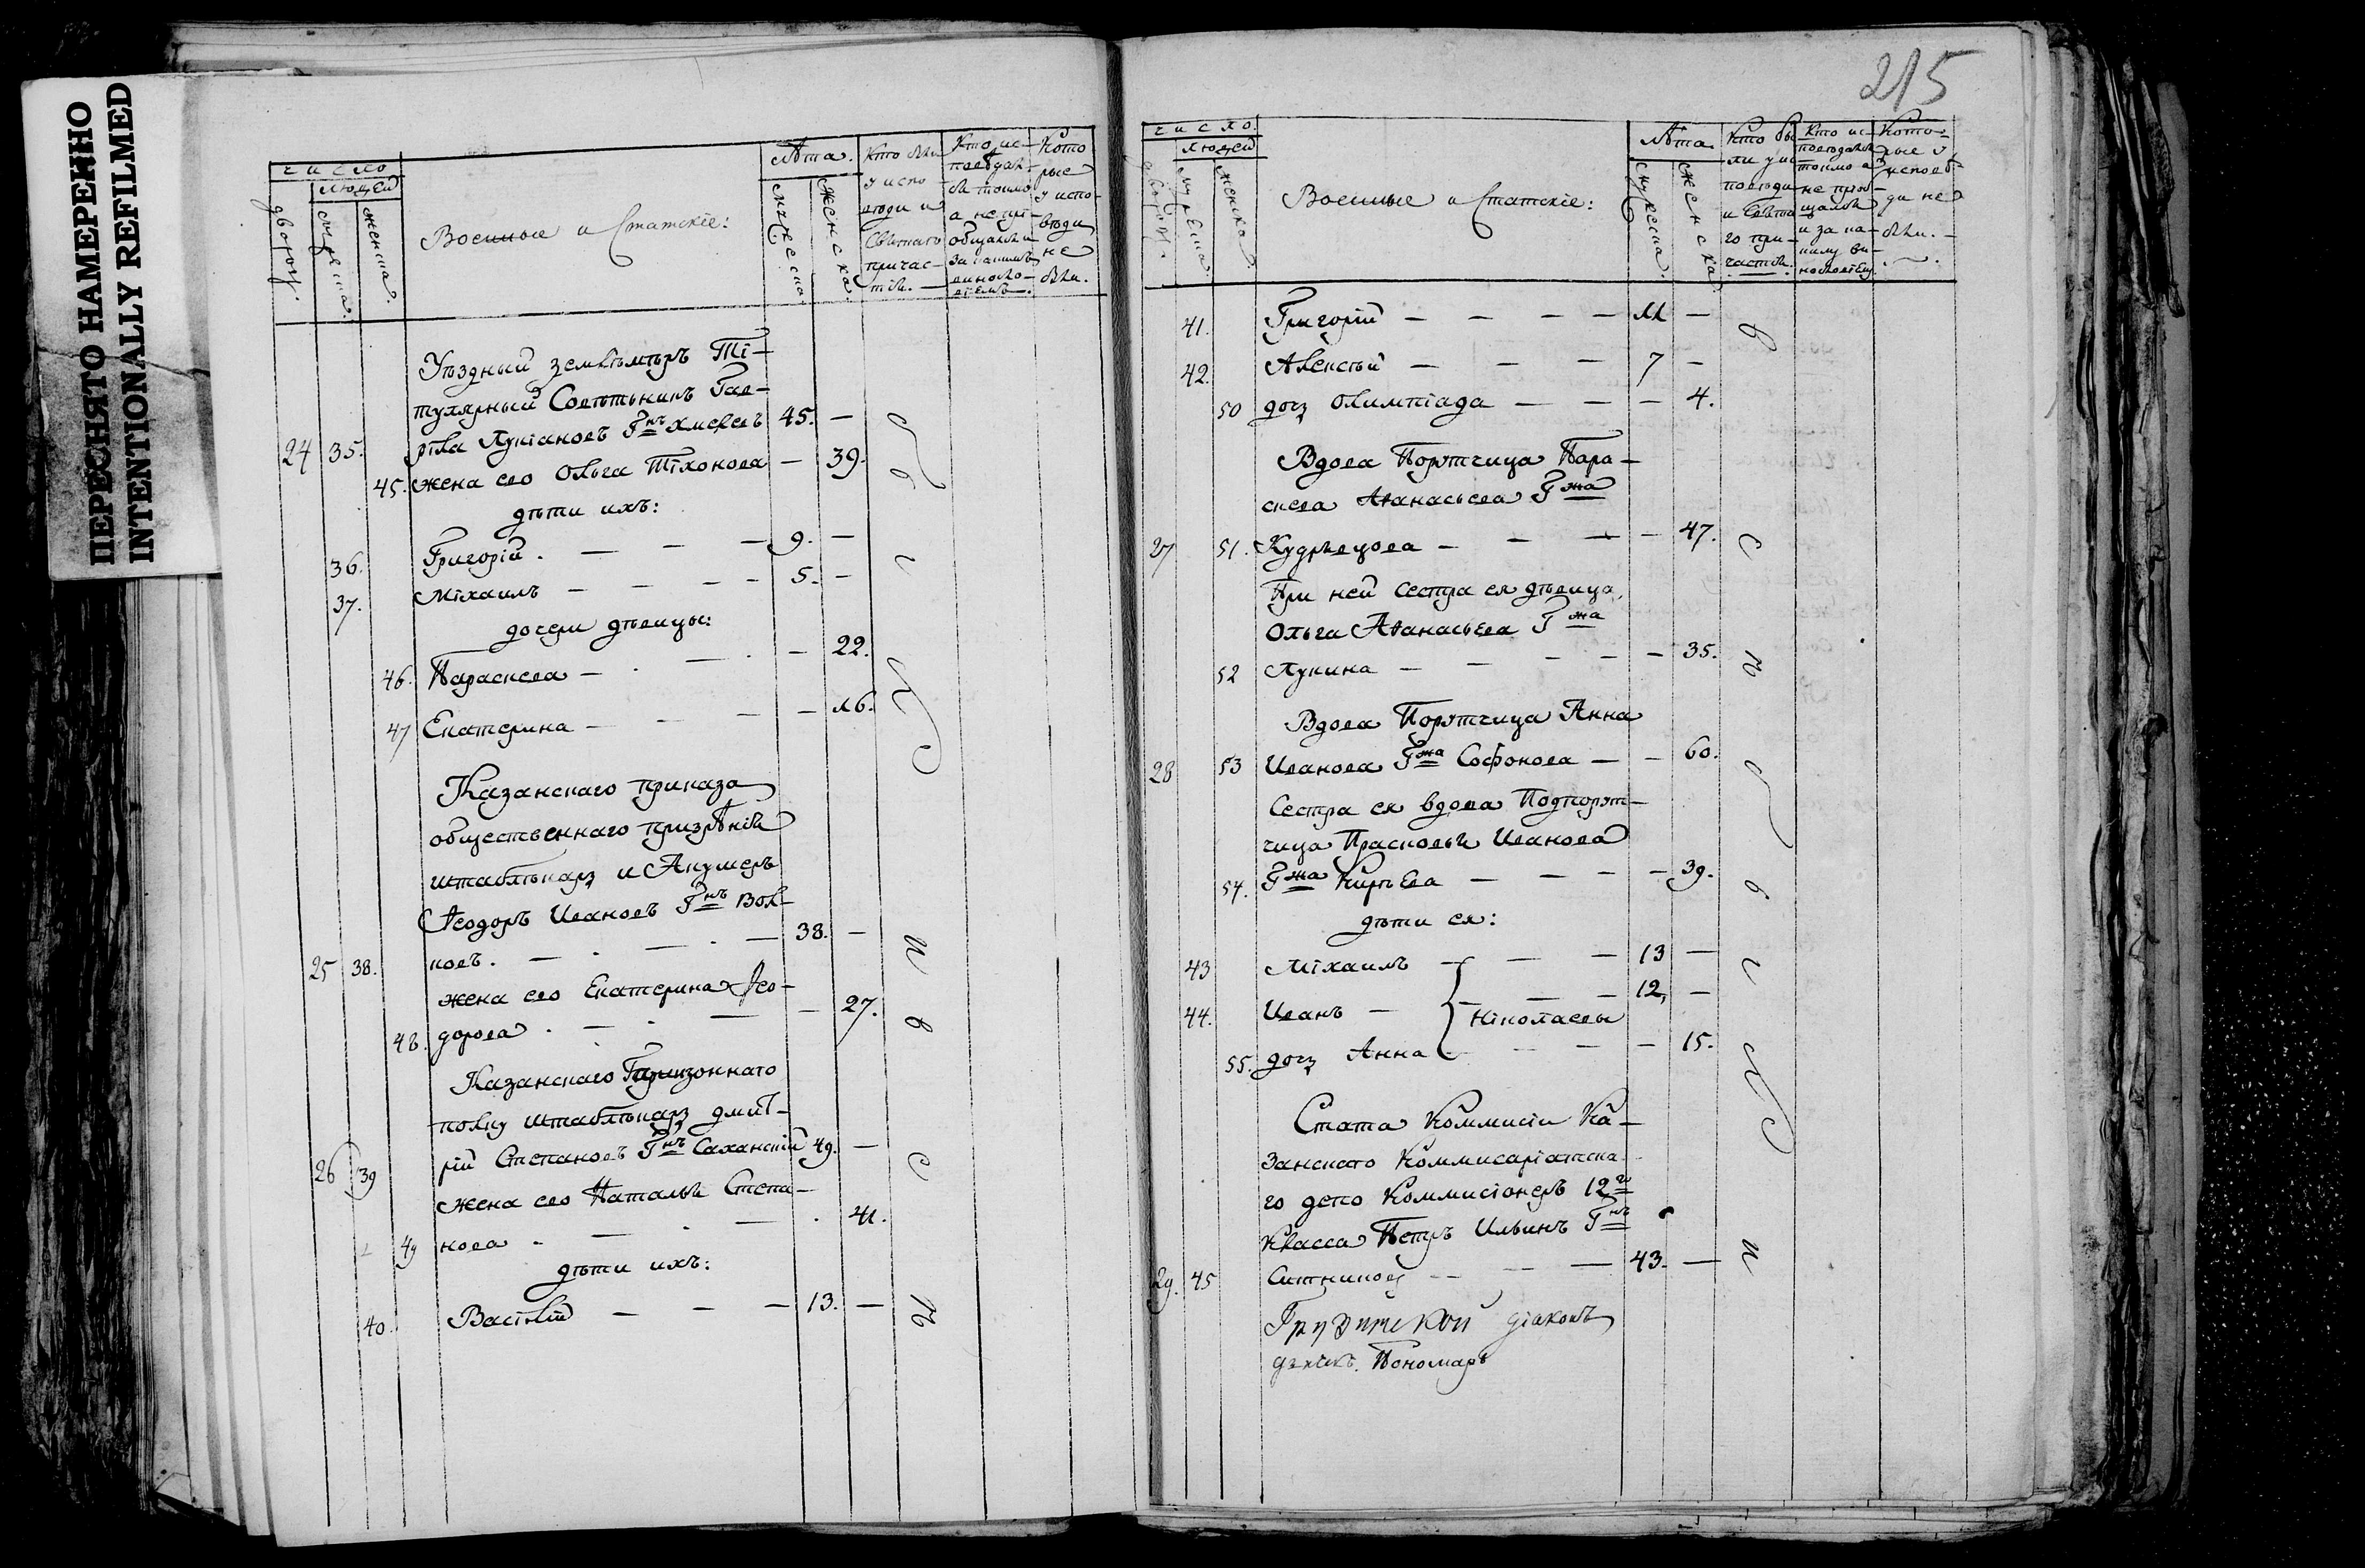 ПЕРЕСНЯТО НАМЕРЕННО
INTENTIONALLY REFILMED
число
людей
дворовъ.
мужеска.
женска.
Военные и Статскіе:
лѣта.
мужеска
женска.
Кто были
у испо-
вѣди и
Святаго
причас-
тія.
Кто ис-
повѣдал-
ся токмо
а не прі-
общался и
за какимъ
виносло-
віемъ.
Кото
рые
у испо-
вѣди
не
были.
Уѣздный землѣмѣръ Ті-
тулярный Совѣтникъ Гав-
24 35. ріла Лукіановъ Гнъ Хмелевъ 45. —
45. жена ево Ольга Тіхонова — 39.
дѣти ихъ:
36. Григорій. — — — 9. —
37. Міхаилъ — — — — 5. —
дочери дѣвицы:
46. Параскева — — — 22.
47 Екатерина — — — — 16.
Казанскаго приказа
общественнаго призрѣнія
штаблѣкарь и Акушеръ
Ѳеодоръ Ивановъ Гнъ Вол-
25 38. ковъ. — — — 38. —
жена ево Екатерина Ѳео-
48. дорова — — — 27.
Казанскаго Гарнизоннаго
полку штаблѣкарь Дмит-
26 39 рій Степановъ Гнъ Саханскій 49. —
жена ево Наталья Степа-
49 нова — — 41.
дѣти ихъ:
40. Васілій — — — 13. —
215
число.
людей
дворовъ.
мужеска.
женска.
Военные и Статскіе:
лѣта
мужеска.
женска
Кто бы-
ли у ис-
повѣди
и Свята
го при-
частія.
Кто ис-
повѣдался
токмо а
не прио-
щался
и за ка-
кимъ ви-
нословіемъ
Кото-
рые у
исповѣ-
ди не
были.
41. Григорій — — — — 11 —
42. Алексѣй — — — 7 —
50 дочь Олимпіада — — — 4.
Вдова Порутчица Пара-
скева Аѳанасьева Гжа
27 51. Кудрявцова — — — — 47.
При ней сестра ея дѣвица,
Ольга Аѳанасьева Гжа
52 Лукина — — — — — 35.
Вдова Порутчица Анна
28 53 Иванова Гжа Софонова — — 60.
Сестра ея вдова Подпорут-
чица Прасковья Иванова
54. Гжа Кирѣева — — — — 39.
дѣти ея:
43 Міхаилъ — — — 13 —
44. Иванъ — — — — 12, —
Ніколаевы
55. дочь Анна — — — — 15.
Стата Коммисіи Ка-
занскаго Коммисаріатска-
го депо Коммисіонеръ 12го
класса Петръ Ильинъ Гнъ
29. 45 Ситниковъ — — — 43. —
Грузинской діаконъ
дьячкъ. Пономарь